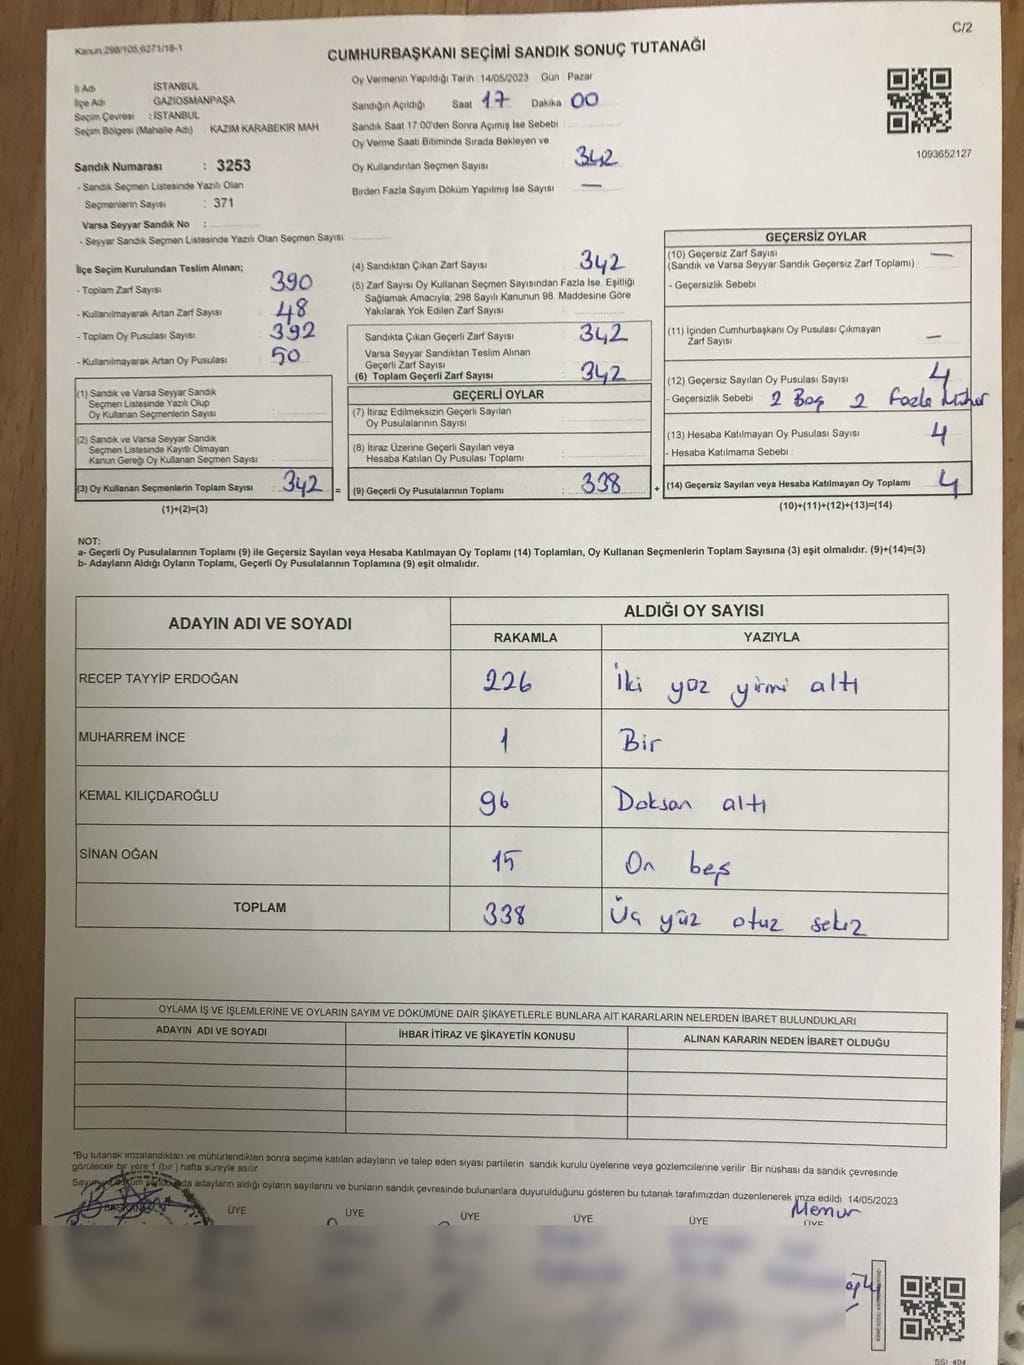 Kanun 298/105,6271/18-1
C/2
CUMHURBAŞKANI SEÇİMİ SANDIK SONUÇ TUTANAĞI
İl Adı İSTANBUL
İlçe Adı GAZİOSMANPAŞA
Seçim Çevresi : İSTANBUL
Seçim Bölgesi (Mahalle Adı) KAZIM KARABEKİR MAH
Sandık Numarası : 3253
- Sandık Seçmen Listesinde Yazılı Olan
Seçmenlerin Sayısı : 371
Varsa Seyyar Sandık No :
- Seyyar Sandık Seçmen Listesinde Yazılı Olan Seçmen Sayısı
Oy Vermenin Yapıldığı Tarih : 14/05/2023 Gün Pazar
Sandığın Açıldığı Saat 17 Dakika 00
Sandık Saat 17:00'den Sonra Açımış İse Sebebi
Oy Verme Saati Bitiminde Sırada Bekleyen ve
Oy Kullandırılan Seçmen Sayısı 342
Birden Fazla Sayım Döküm Yapılmış İse Sayısı —
1093652127
İlçe Seçim Kurulundan Teslim Alınan;
- Toplam Zarf Sayısı 390
- Kullanılmayarak Artan Zarf Sayısı 48
- Toplam Oy Pusulası Sayısı 392
- Kullanılmayarak Artan Oy Pusulası 50
(1) Sandık ve Varsa Seyyar Sandık
Seçmen Listesinde Yazılı Olup
Oy Kullanan Seçmenlerin Sayısı
(2) Sandık ve Varsa Seyyar Sandık
Seçmen Listesinde Kayıtlı Olmayan
Kanun Gereği Oy Kullanan Seçmen Sayısı
(3) Oy Kullanan Seçmenlerin Toplam Sayısı : 342 =
(1)+(2)=(3)
(4) Sandıktan Çıkan Zarf Sayısı 342
(5) Zarf Sayısı Oy Kullanan Seçmen Sayısından Fazla İse, Eşitliği
Sağlamak Amacıyla; 298 Sayılı Kanunun 98. Maddesine Göre
Yakılarak Yok Edilen Zarf Sayısı
Sandıkta Çıkan Geçerli Zarf Sayısı 342
Varsa Seyyar Sandıktan Teslim Alınan
Geçerli Zarf Sayısı
(6) Toplam Geçerli Zarf Sayısı 342
GEÇERLİ OYLAR
(7) İtiraz Edilmeksizin Geçerli Sayılan
Oy Pusulalarının Sayısı
(8) İtiraz Üzerine Geçerli Sayılan veya
Hesaba Katılan Oy Pusulası Toplamı
(9) Geçerli Oy Pusulalarının Toplamı : 338 +
GEÇERSİZ OYLAR
(10) Geçersiz Zarf Sayısı —
(Sandık ve Varsa Seyyar Sandık Geçersiz Zarf Toplamı) :
- Geçersizlik Sebebi :
(11) İçinden Cumhurbaşkanı Oy Pusulası Çıkmayan
Zarf Sayısı —
(12) Geçersiz Sayılan Oy Pusulası Sayısı 4
- Geçersizlik Sebebi : 2 Boş 2 Fazla Mühür
(13) Hesaba Katılmayan Oy Pusulası Sayısı 4
- Hesaba Katılmama Sebebi :
(14) Geçersiz Sayılan veya Hesaba Katılmayan Oy Toplamı 4
(10)+(11)+(12)+(13)=(14)
NOT:
a- Geçerli Oy Pusulalarının Toplamı (9) ile Geçersiz Sayılan veya Hesaba Katılmayan Oy Toplamı (14) Toplamları, Oy Kullanan Seçmenlerin Toplam Sayısına (3) eşit olmalıdır. (9)+(14)=(3)
b- Adayların Aldığı Oyların Toplamı, Geçerli Oy Pusulalarının Toplamına (9) eşit olmalıdır.
ADAYIN ADI VE SOYADI ALDIĞI OY SAYISI
RAKAMLA YAZIYLA
RECEP TAYYİP ERDOĞAN 226 İki yüz yirmi altı
MUHARREM İNCE 1 Bir
KEMAL KILIÇDAROĞLU 96 Doksan altı
SİNAN OĞAN 15 On beş
TOPLAM 338 Üç yüz otuz sekiz
OYLAMA İŞ VE İŞLEMLERİNE VE OYLARIN SAYIM VE DÖKÜMÜNE DAİR ŞİKAYETLERLE BUNLARA AİT KARARLARIN NELERDEN İBARET BULUNDUKLARI
ADAYIN ADI VE SOYADI İHBAR İTİRAZ VE ŞİKAYETİN KONUSU ALINAN KARARIN NEDEN İBARET OLDUĞU
*Bu tutanak imzalandıktan ve mühürlendikten sonra seçime katılan adayların ve talep eden siyası partilerin sandık kurulu üyelerine veya gözlemcilerine verilir Bir nüshası da sandık çevresinde
görülecek bir yere 1 (bir ) hafta süreyle asılır
adayların aldığı oyların sayılarını ve bunların sandık çevresinde bulunanlara duyurulduğunu gösteren bu tutanak tarafımızdan düzenlenerek imza edildi 14/05/2023
Memur
BAŞKAN ÜYE ÜYE ÜYE ÜYE ÜYE ÜYE